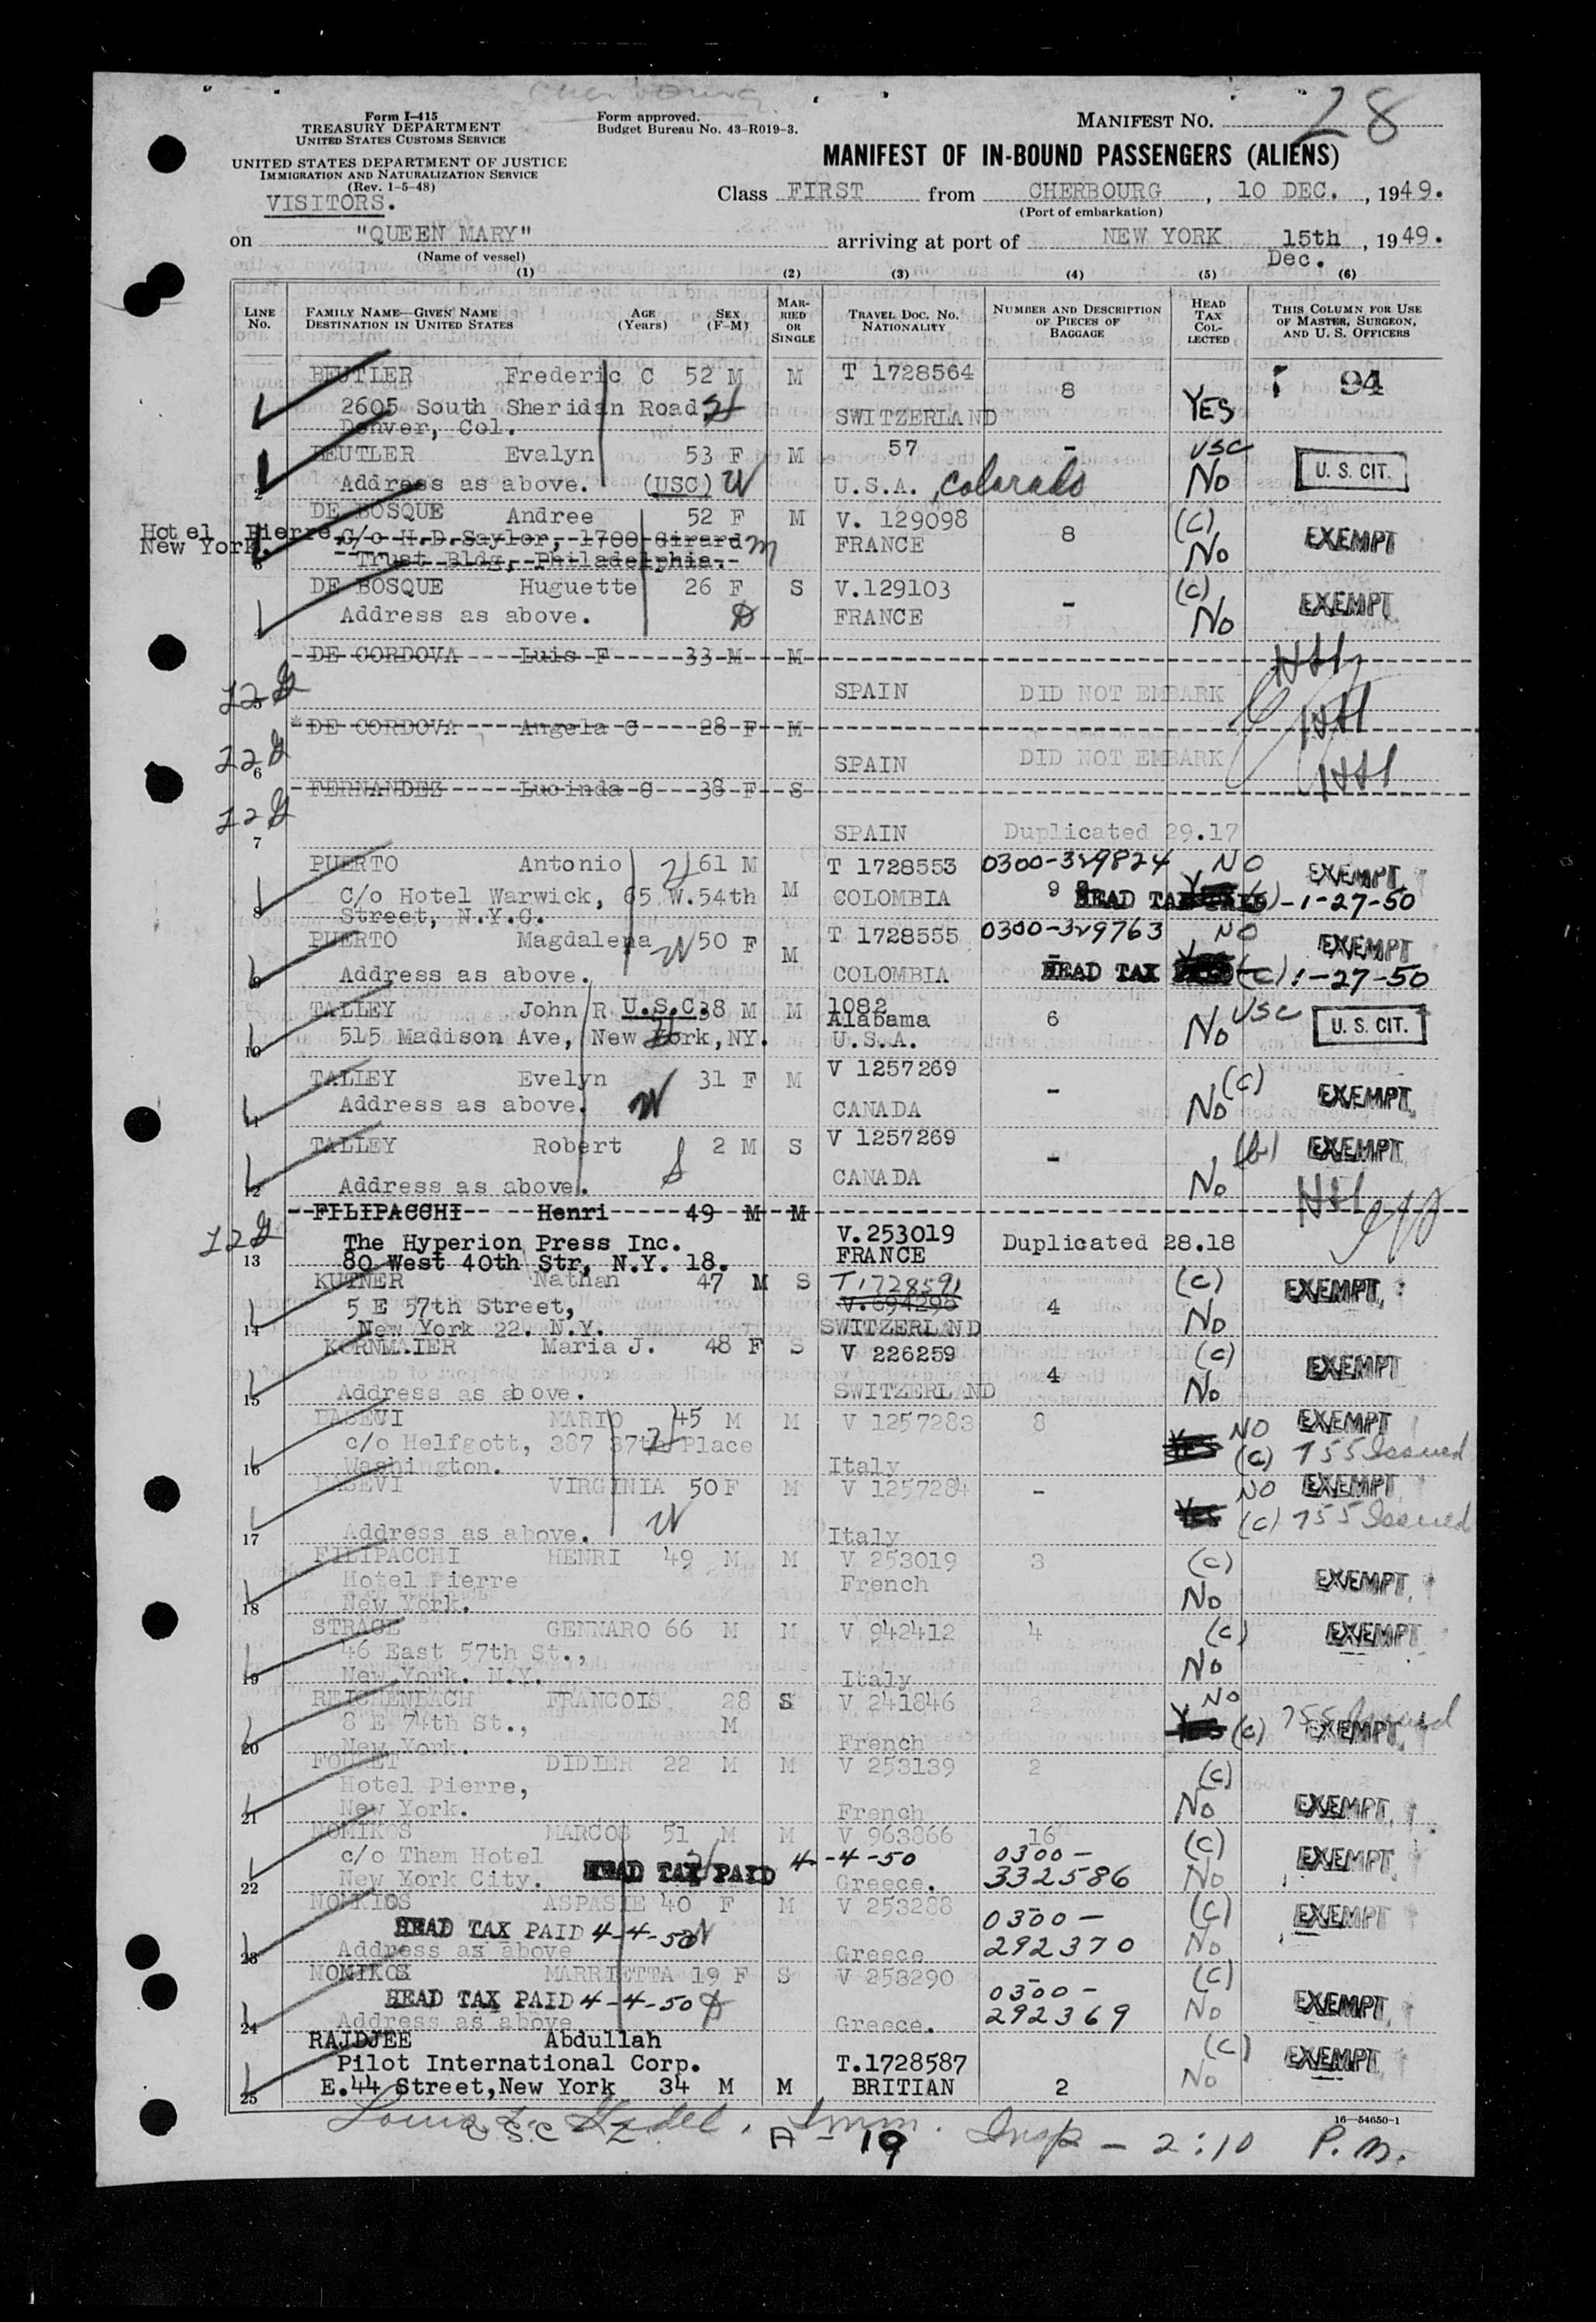 Cherbourg
Form I-415
TREASURY DEPARTMENT
UNITED STATES CUSTOMS SERVICE
UNITED STATES DEPARTMENT OF JUSTICE
IMMIGRATION AND NATURALIZATION SERVICE
(Rev. 1-5-48)
VISITORS.
Form approved.
Budget Bureau No. 43-R019-3.
MANIFEST NO. 28
MANIFEST OF IN-BOUND PASSENGERS (ALIENS)
Class FIRST from CHERBOURG, 10 DEC., 1949.
(Port of embarkation)
on "QUEEN MARY" arriving at port of NEW YORK 15th Dec., 1949.
(Name of vessel)
(1) (2) (3) (4) (5) (6)
LINE NO. FAMILY NAME—GIVEN NAME DESTINATION IN UNITED STATES AGE (Years) SEX (F-M) MARRIED OR SINGLE TRAVEL DOC. NO. NATIONALITY NUMBER AND DESCRIPTION OF PIECES OF BAGGAGE HEAD TAX COLLECTED THIS COLUMN FOR USE OF MASTER, SURGEON, AND U. S. OFFICERS
BEUTLER Frederic C 52 M M T 1728564 8 94
2605 South Sheridan Road SWITZERLAND YES
Denver, Col.
BEUTLER Evalyn 53 F M 57 - USC
2 Address as above. (USC) W U.S.A. , Colorado No U. S. CIT.
DE BOSQUE Andree 52 F M V. 129098 8 (C) EXEMPT
Hotel Pierre, C/o H.D.Saylor, 1700 Girard M FRANCE No
New York.
3 Trust Bldg, Philadelphia.
DE BOSQUE Huguette 26 F S V.129103 - (C) EXEMPT
4 Address as above. D FRANCE No
DE CORDOVA Luis F 33 M M
5 SPAIN DID NOT EMBARK
* DE CORDOVA Angela C 28 F M
6 SPAIN DID NOT EMBARK
FERNANDEZ Lucinda C 38 F S
7 SPAIN Duplicated 29.17
PUERTO Antonio 61 M M T 1728553 0300-329824 NO EXEMPT
8 C/o Hotel Warwick, 65 W.54th COLOMBIA 9 HEAD TAX (C) -1-27-50
Street, N.Y.C.
PUERTO Magdalena W 50 F M T 1728555 0300-329763 NO EXEMPT
9 Address as above. COLOMBIA - HEAD TAX (C) 1-27-50
TALLEY John R U.S.C. 38 M M 1082 Alabama 6 No USC U. S. CIT.
10 515 Madison Ave, New York, NY. U.S.A.
TALLEY Evelyn 31 F M V 1257269 - (C) EXEMPT
11 Address as above. W CANADA No
TALLEY Robert 2 M S V 1257269 - (b) EXEMPT
12 Address as above. S CANADA No
FILIPACCHI Henri 49 M M
The Hyperion Press Inc. V.253019 Duplicated 28.18
13 80 West 40th Str, N.Y. 18. FRANCE
KUTNER Nathan 47 M S T1728591 (C) EXEMPT
5 E 57th Street, V.694296 4
14 New York 22. N.Y. SWITZERLAND No
KORNMAIER Maria J. 48 F S V 226259 4 (C) EXEMPT
15 Address as above. SWITZERLAND No
BASEVI MARIO 45 M M V 1257283 8 NO EXEMPT
c/o Helfgott, 387 37th Place YES (C) 755 Issued
16 Washington. Italy
BASEVI VIRGINIA 50 F M V 1257284 - NO EXEMPT
17 Address as above. W Italy YES (C) 755 Issued
FILIPACCHI HENRI 49 M M V 253019 3 (C) EXEMPT
Hotel Pierre French
18 New York. No
STRAGE GENNARO 66 M M V 942412 4 (C) EXEMPT
46 East 57th St.,
19 New York. N.Y. Italy No
REICHENBACH FRANCOIS 28 S V 241846 2 NO
8 E 74th St., M YES (C) 755 Issued EXEMPT
20 New York. French
FOURET DIDIER 22 M M V 253139 2 (C)
Hotel Pierre,
21 New York. French No EXEMPT
NOMIKOS MARCOS 51 M M V 963866 16 (C)
c/o Tham Hotel HEAD TAX PAID 4-4-50 0300- EXEMPT
22 New York City. Greece. 332586 No
NOMIKOS ASPASIE 40 F M V 253288 - (C)
HEAD TAX PAID 4-4-50 W 0300- EXEMPT
23 Address as above Greece 292370 No
NOMIKOS MARRIETTA 19 F S V 253290 - (C)
HEAD TAX PAID 4-4-50 D 0300- EXEMPT
24 Address as above Greece. 292369 No
RAJDJEE Abdullah (C)
Pilot International Corp. T.1728587 EXEMPT
25 E.44 Street,New York 34 M M BRITIAN 2 No
16—54650-1
USC 2 A - 19 Imm. Insp - 2:10 P.M.